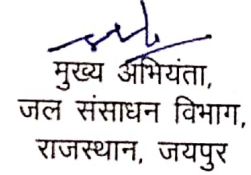 मुख्य अभियंता,
जल संसाधन विभाग,
राजस्थान, जयपुर